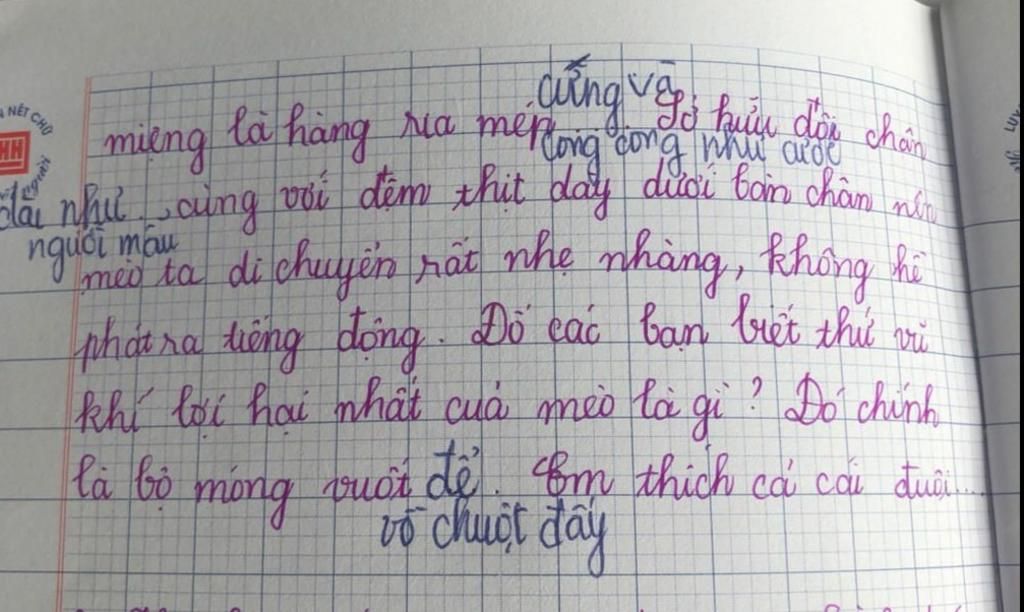 NÉT CHỮ
HH
người
LUY
cứng và
miệng là hàng ria mép sở hữu đôi chân
cong cong như cước
dài như , cùng với đệm thịt dày dưới bàn chân nên
người mẫu
mèo ta di chuyển rất nhẹ nhàng, không hề
phát ra tiếng động. Đố các bạn biết thứ vũ
khí lợi hại nhất của mèo là gì? Đó chính
là bộ móng vuốt để. Em thích cả cái đuôi...
vồ chuột đấy